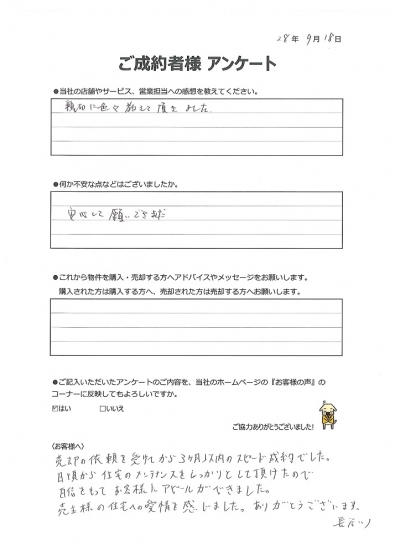 28年 9月 18日
ご成約者様 アンケート
●当社の店舗やサービス、営業担当への感想を教えてください。
親切に色々教えて頂きました
●何か不安な点などはございましたか。
安心して願いできまた
●これから物件を購入・売却する方へアドバイスやメッセージをお願いします。
購入された方は購入する方へ、売却された方は売却する方へお願いします。
●ご記入いただいたアンケートのご内容を、当社のホームページの『お客様の声』の
コーナーに反映してもよろしいですか。
☑はい □いいえ
ご協力ありがとうございました!
<お客様へ>
売却の依頼を受けてから3ヶ月以内のスピード成約でした。
日頃から住宅のメンテナンスをしっかりとして頂けたので
自信をもってお客様にアピールができました。
売主様の住宅への愛情を感じました。ありがとうございます。
長谷川